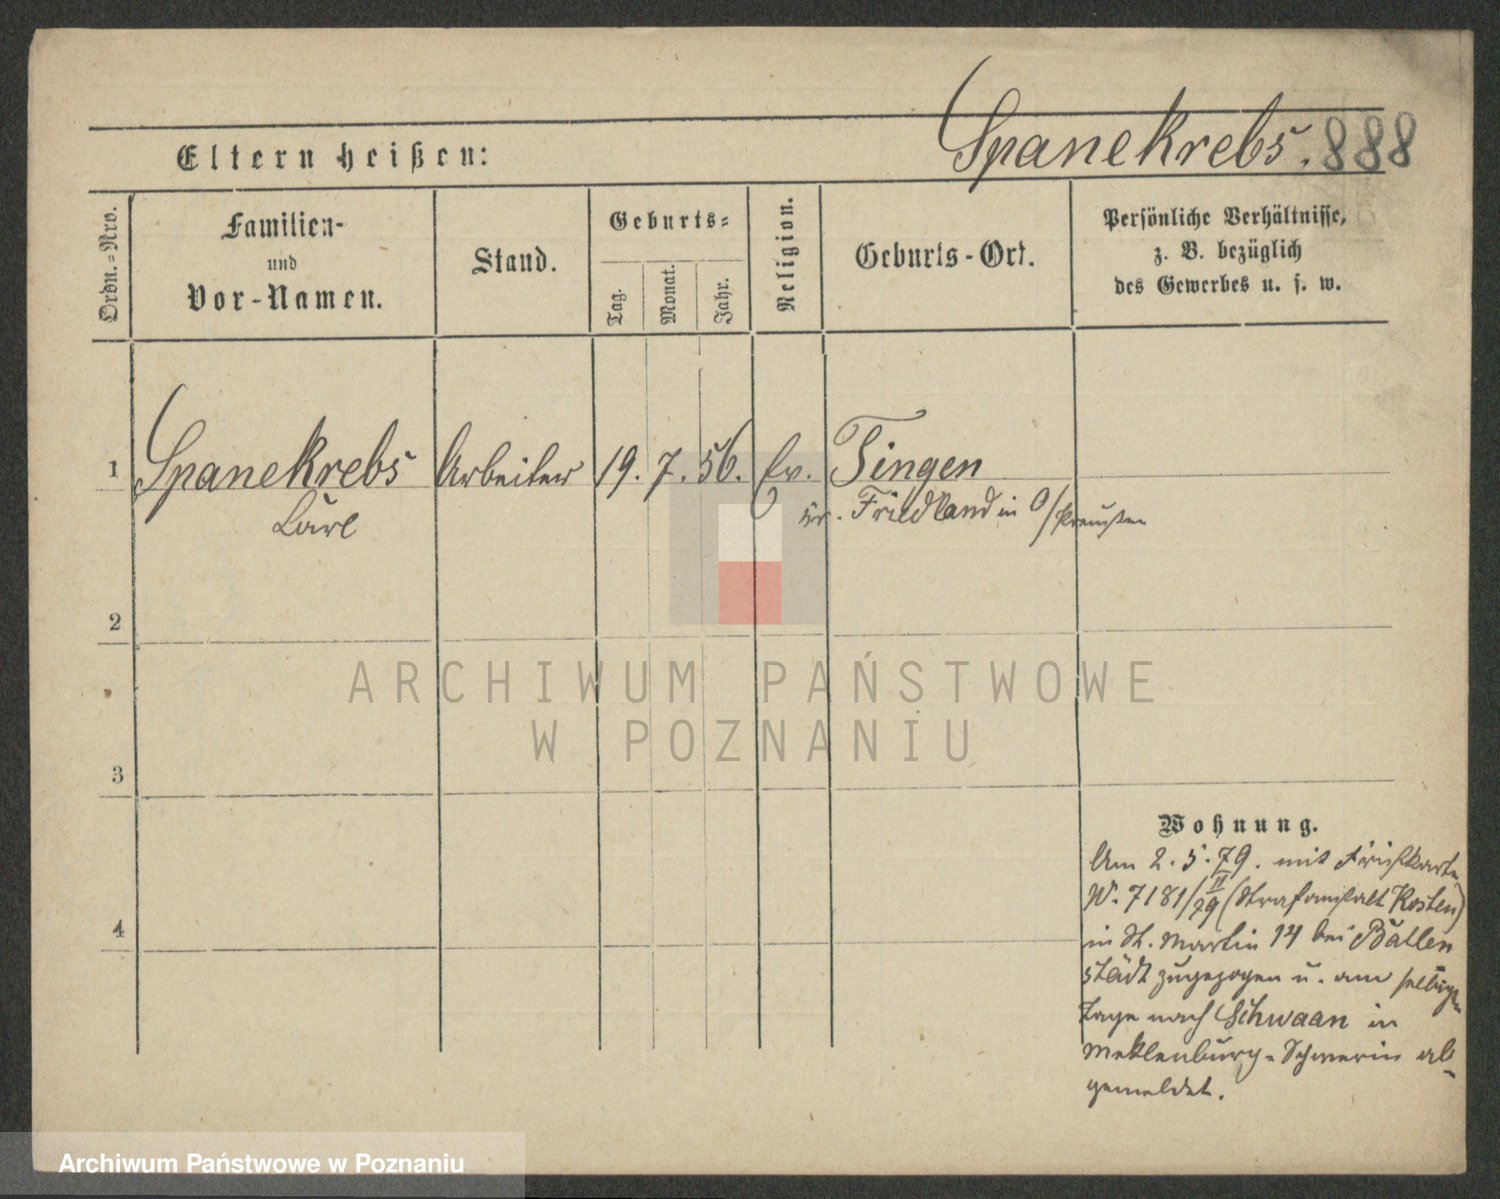 Spanekrebs. 888
Eltern heißen:
Ordn.=Nro.
Familien-
und
Vor-Namen.
Stand.
Geburts=
Tag.
Monat.
Jahr.
Religion.
Geburts-Ort.
Persönliche Verhältnisse,
z. B. bezüglich
des Gewerbes u. s. w.
1 Spanekrebs Arbeiter 19. 7. 56. Ev. Tingen
Carl Kr. Friedland in O/Preußen
2
3
4
Wohnung.
Am 2. 5. 79. mit
N. 7181/II 79 (Strafanstalt Kosten)
in St. Martin 14 bei Ballen
städt zugezogen u. am selbigen
Tage nach Schwaan in
Meklenburg-Schwerin ab-
gemeldet.
ARCHIWUM PAŃSTWOWE
W POZNANIU
Archiwum Państwowe w Poznaniu